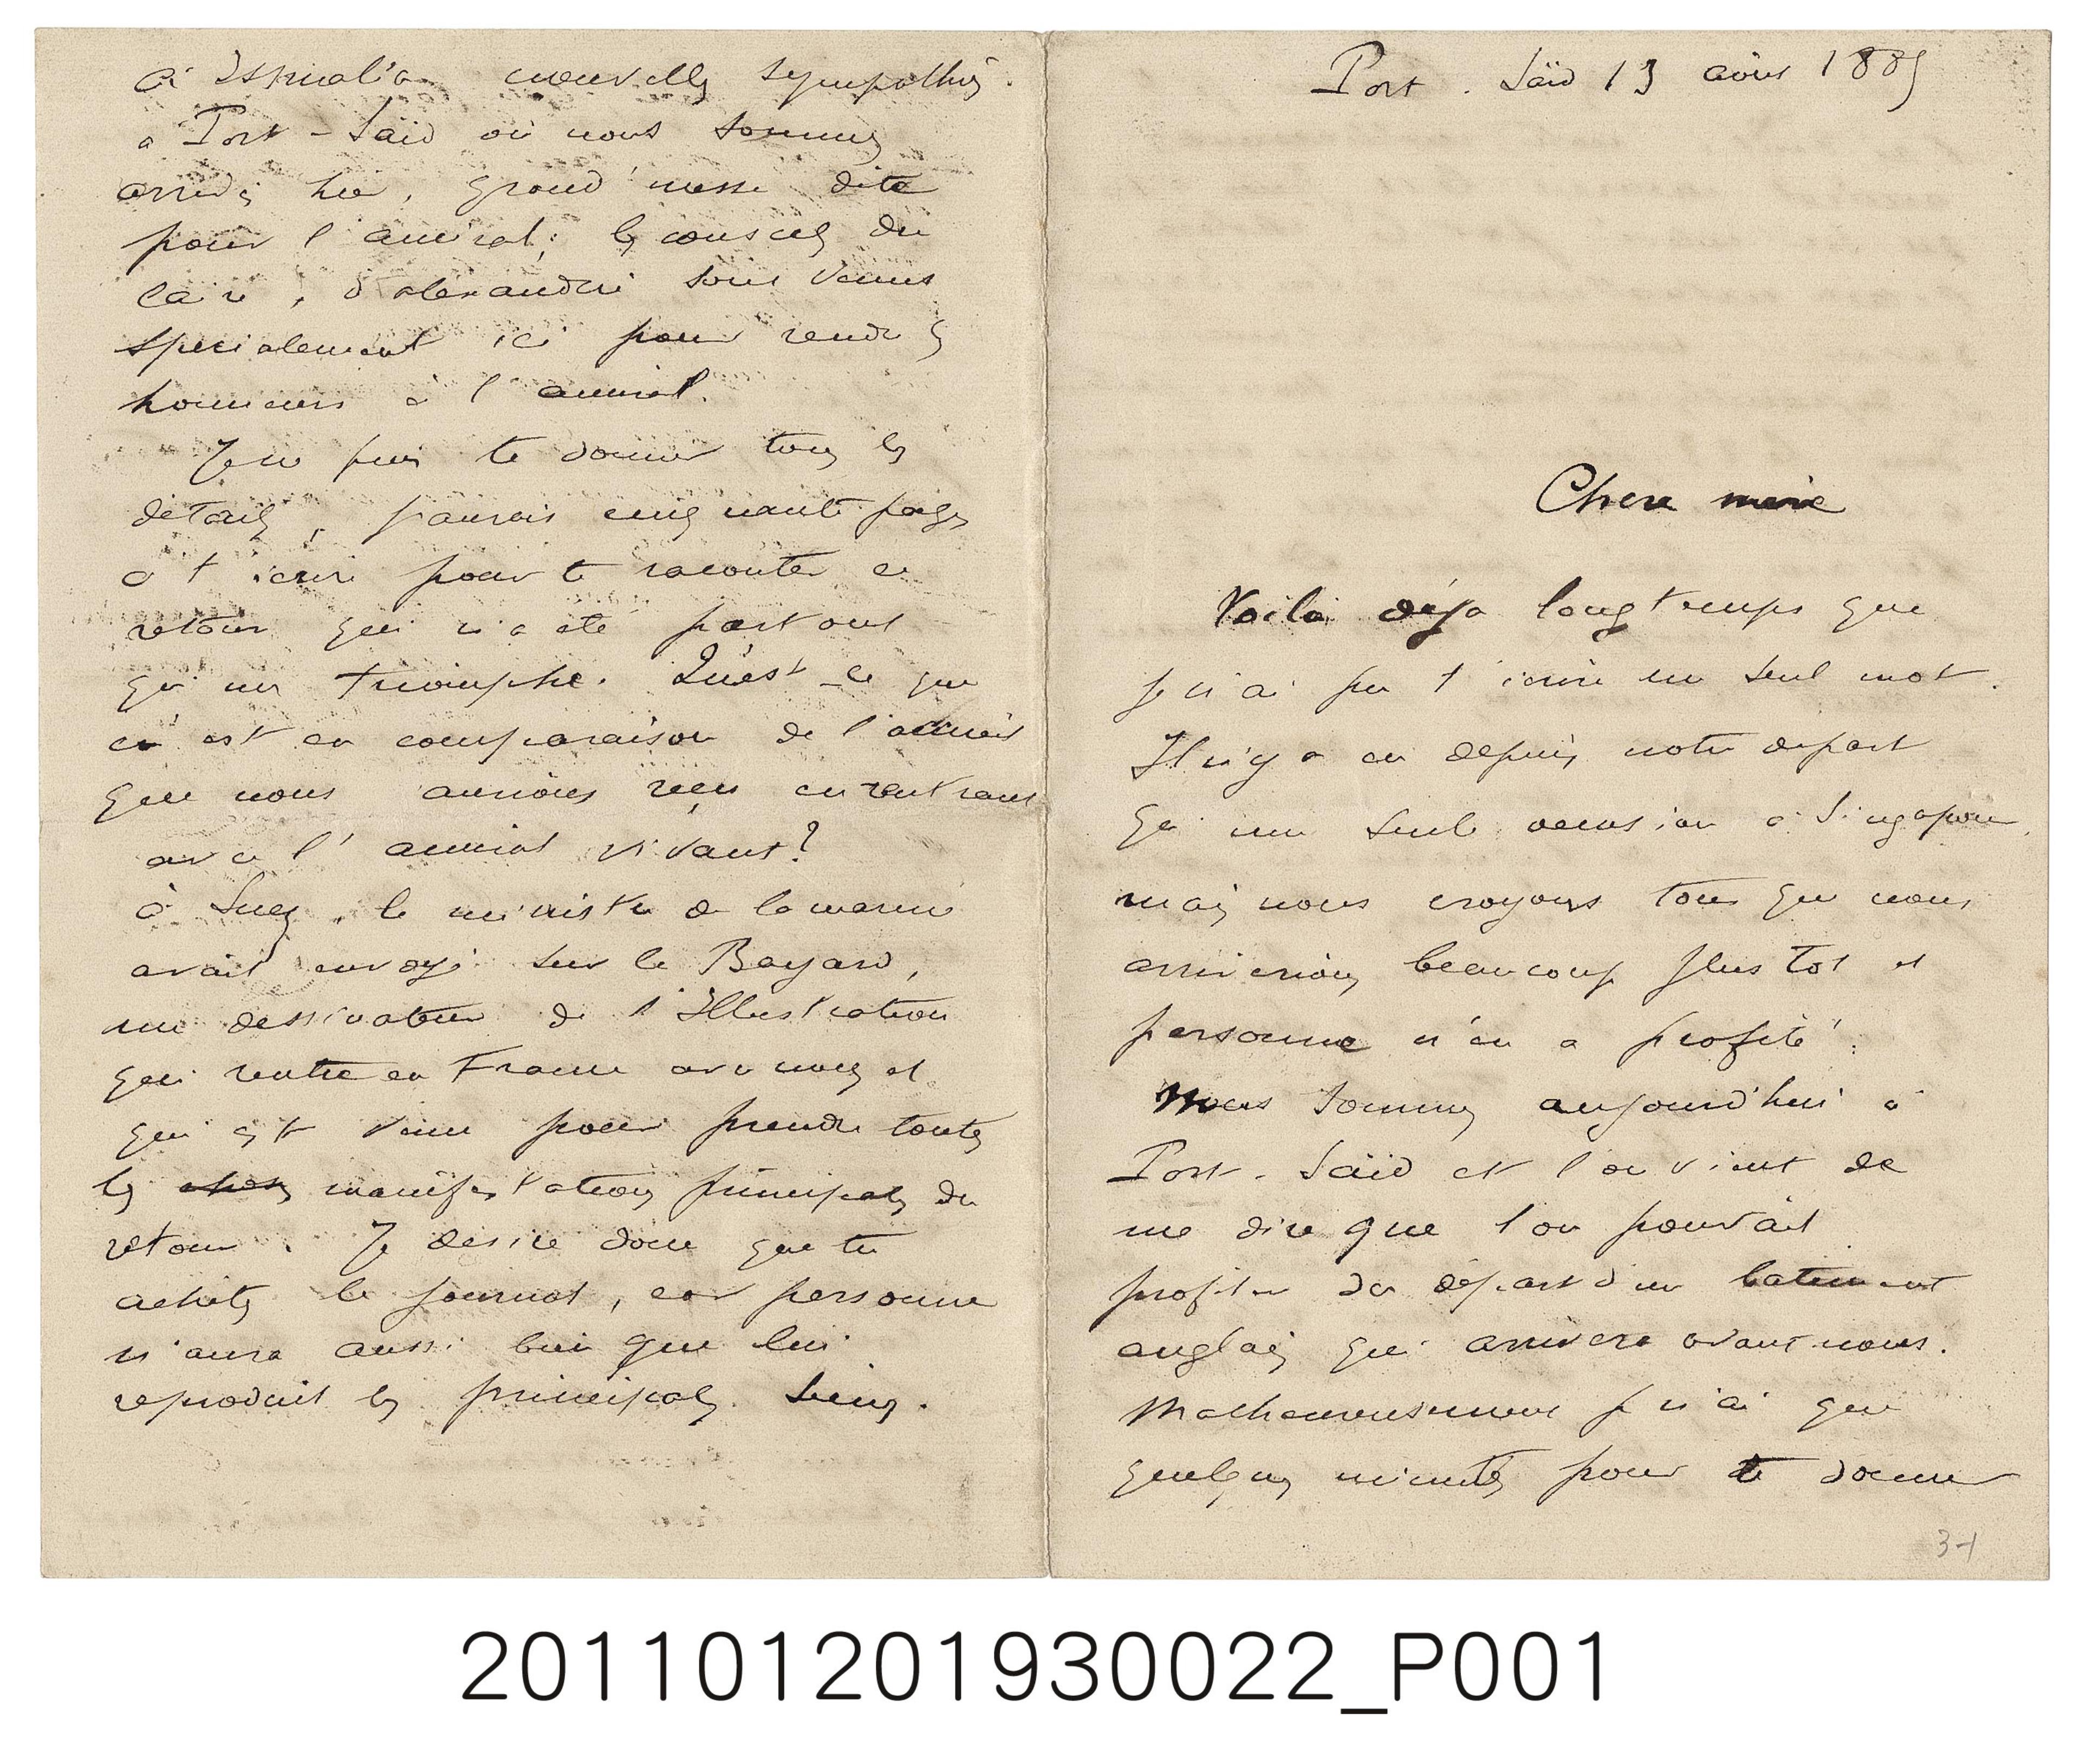 Port-Saïd 13 août 1885
Chère mère
Voilà déjà longtemps que
je n'ai pu t'écrire un seul mot.
Il n'y a eu depuis notre départ
qu'une seule occasion à Singapoure,
mais nous croyons tous que nous
arriverions beaucoup plus tôt et
personne n'en a profité.
Nous sommes aujourd'hui à
Port-Saïd et l'on vient de
me dire que l'on pouvait
profiter du départ d'un batiment
anglais qui arrivera avant nous.
Malheureusement je n'ai que
quelques minutes pour te donner
3-1
à Ismal'a nouvelles sympathies.
a Port-Saïd où nous sommes
arrivés hier, grand'messe dite
pour l'amiral; les consuls du
Caire, d'alexandrie sont venus
spécialement ici pour rendre les
honneurs à l'amiral.
Je ne puis te donner tous les
détails, j'aurais cinquante pages
à t'écrire pour te raconter ce
retour qui n'a été partout
qu'un triomphe. Qu'est-ce que
c'est en comparaison de l'accueil
que nous aurions reçu en rentrant
avec l'amiral vivant?
à Suez, le ministre de la marine
avait envoyé sur le Bayard,
un dessinateur de l'Illustration
qui rentre en France avec nous et
qui est venu pour prendre toutes
les choses manifestations principales du
retour. Je désire donc que tu
achètes le journal, car personne
n'aura aussi bien que lui
reproduit les principales
201101201930022_P001